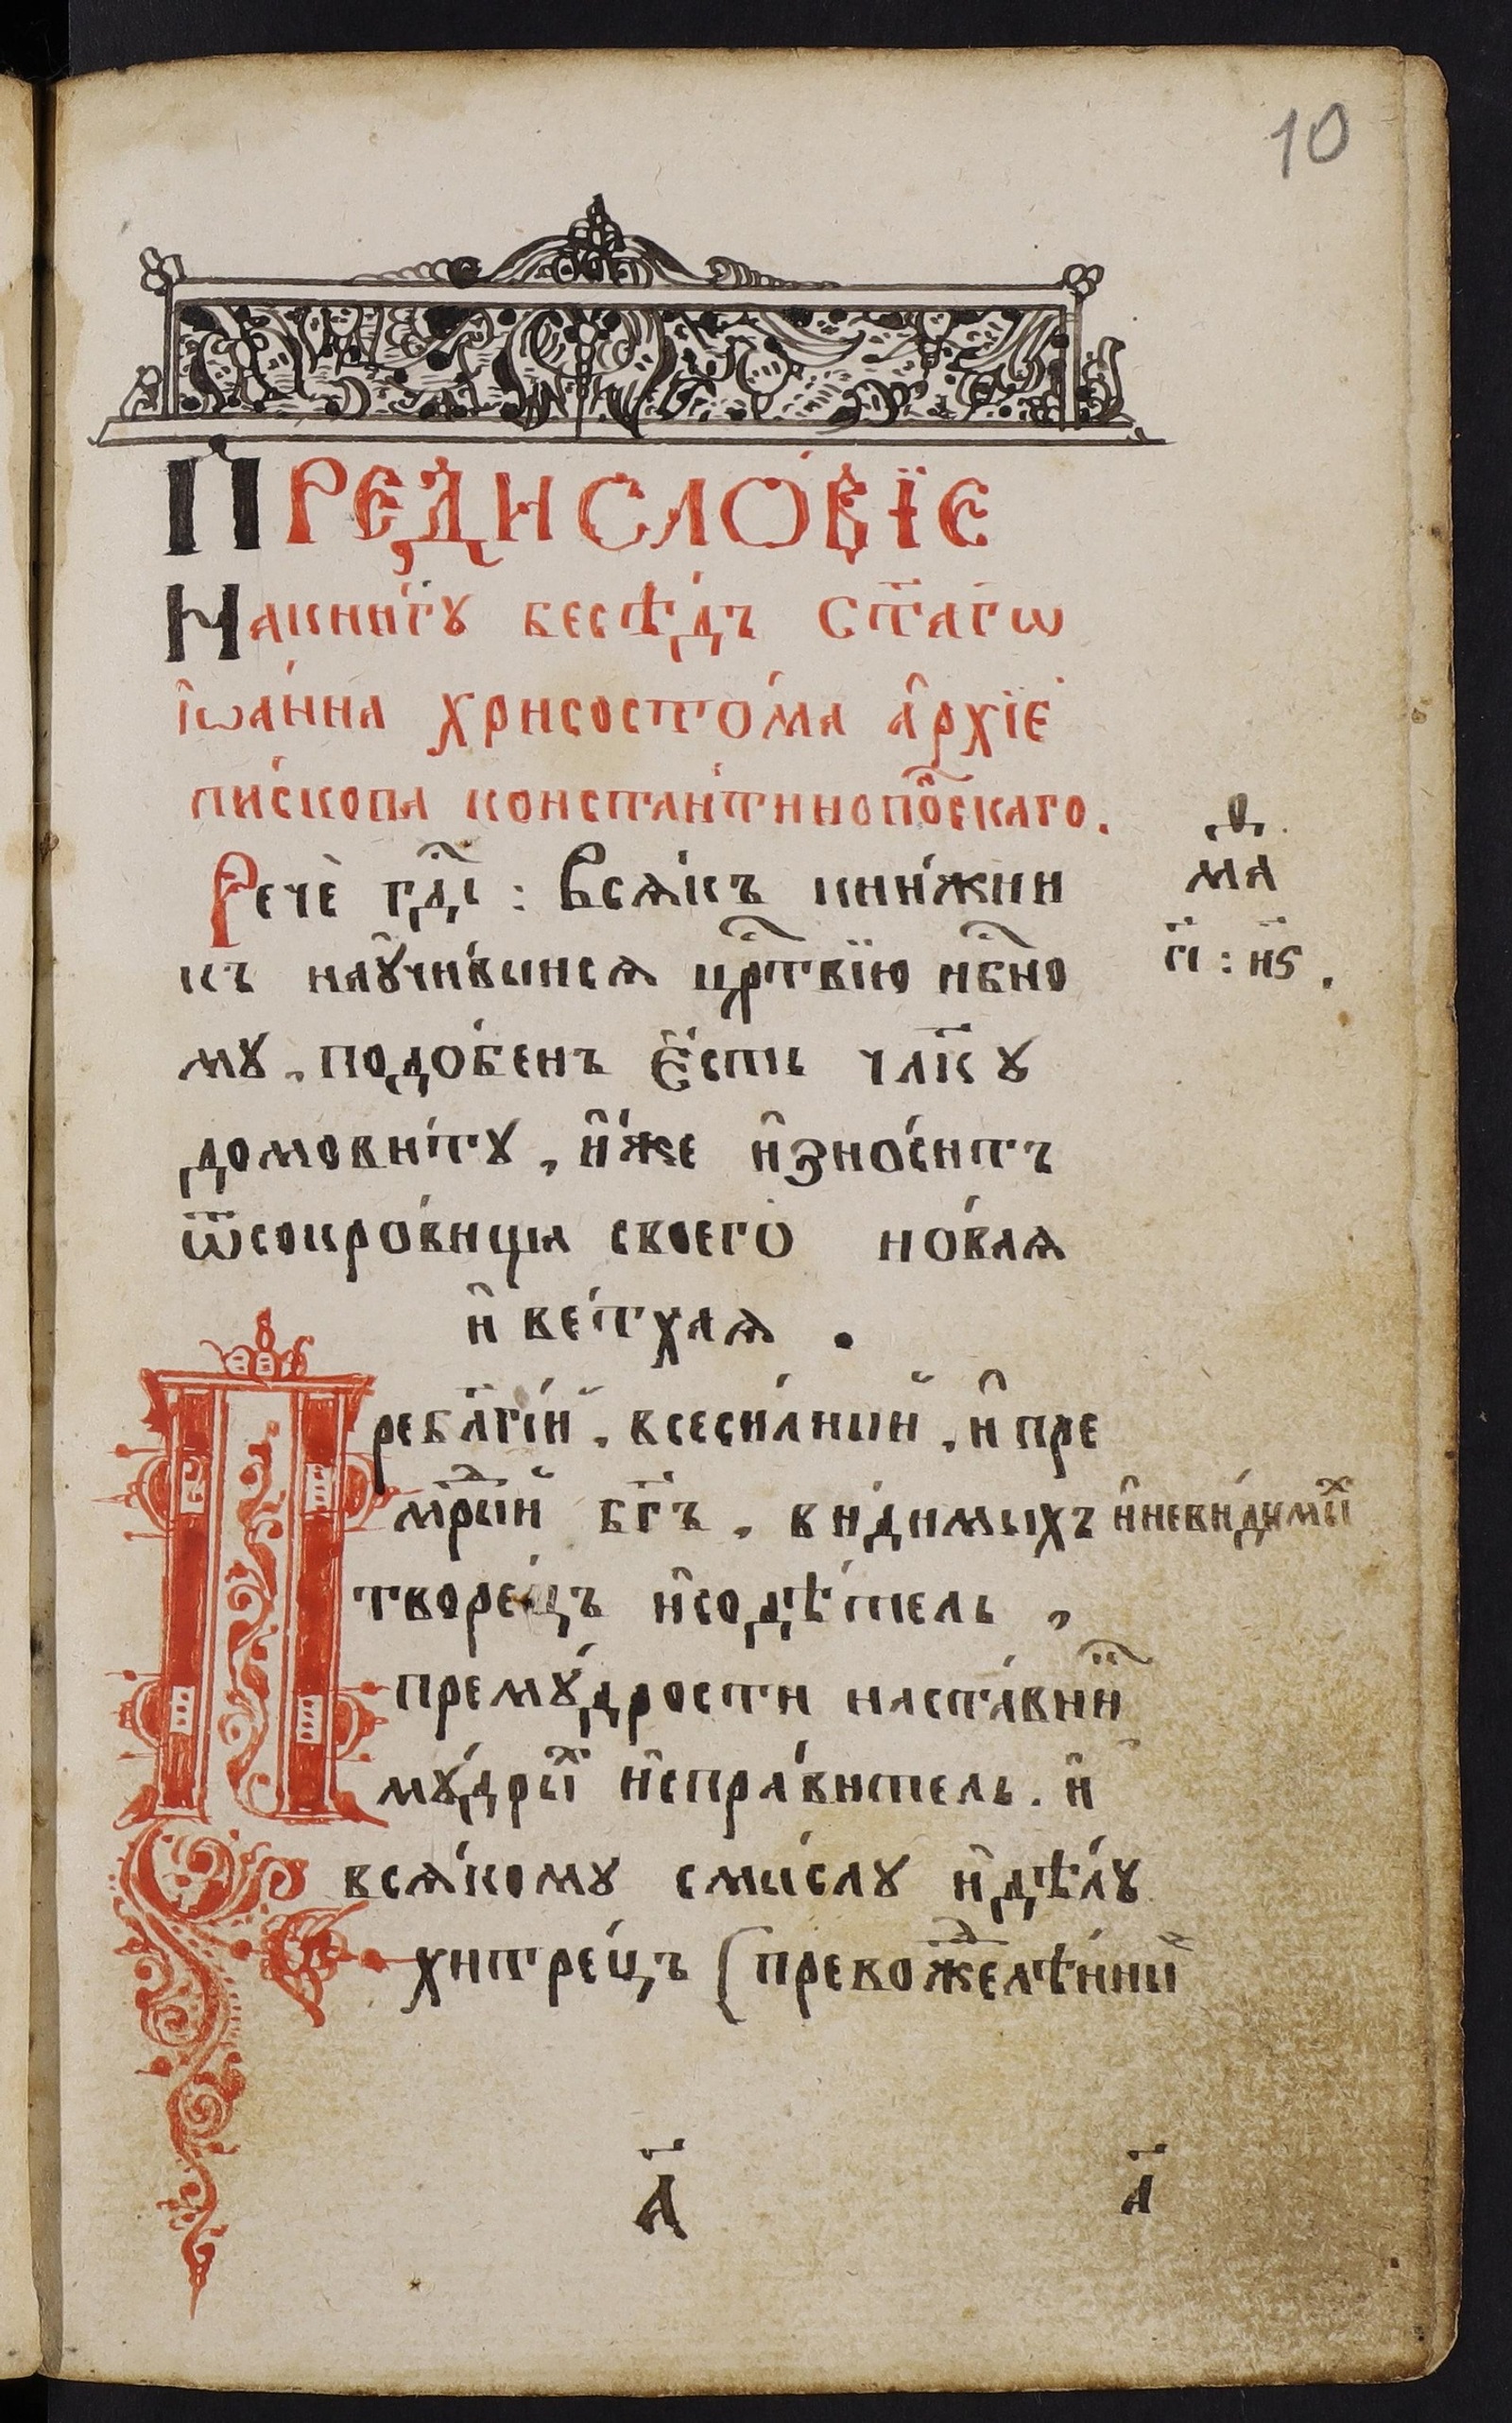 10
ПРЕДИСЛО́ВЇЕ
Накни́гꙋ бесѣ́дъ ст҃а́гѡ
і҆ѡа́нна хрисосто́ма а҆рхїе
пи́скопаконста́нтинопо́скаго.
Речѐ гд҃ь: всѧ́къ кни́жни
къ наꙋчи́выисѧ црⷭ҇твїю нбⷭ҇но
мꙋ, подо́бенъ є҆́сть чл҃кꙋ
домови́тꙋ, и҆́же и҆зно́ситъ
ѿсокро́вища своего̀ но́ваѧ
и҆ ве́тхаѧ .
Пребл҃гі́й, всеси́лный, и҆ пре
мрⷣый бг҃ъ, ви́димыхъ и҆неви́димыⷯ
творе́цъ и҆содѣ́тель ,
премꙋ́дрости наста́вни
мꙋ́дрыⷯ и҆спра́витель. и҆
всѧ́комꙋ смы́слꙋ и҆дѣ́лꙋ
хитре́цъ (превожделѣ́нны
а҃ а҃
ма
г҃і: н҃ѕ.